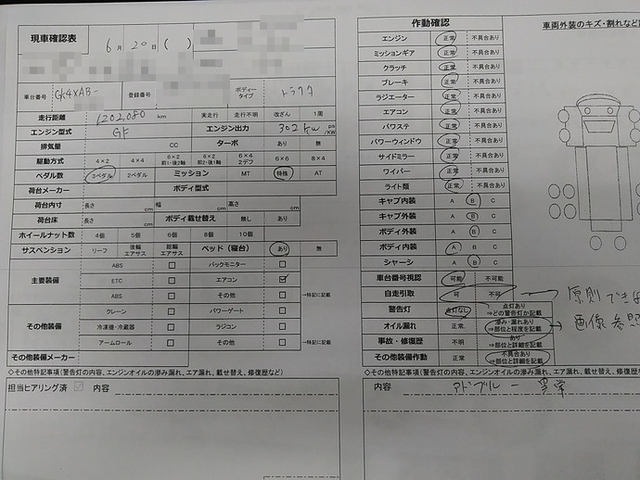 現車確認表
6月 20日 ( )
車台番号 GK4XAB- 登録番号 ボディータイプ トラクタ
走行距離 1202,080 km 実走行 走行不明 改ざん 1周
エンジン型式 GF エンジン出力 302 kw ps/KW
排気量 CC ターボ あり 無
駆動方式 4×2 4×4 6×2 前1・後2軸 6×2 前2・後1軸 6×4 6×4 2デフ 6×6 8×4
ペダル数 3ペダル 2ペダル ミッション MT 特殊 AT
荷台メーカー ボディ型式
荷台内寸 長さ cm 幅 cm 高さ cm
荷台床 ボディ載せ替え 無し あり
ホイールナット数 4個 5個 6個 8個 10個
サスペンション リーフ 後輪エアサス 総輪エアサス ベッド(寝台) あり 無
主要装備
ABS □ バックモニター □
ETC □ エアコン ☑
ABS □ その他 □ →特記に記載
その他装備
クレーン □ パワーゲート □
冷凍機・冷蔵器 □ ラジコン □
アームロール □ その他 □ →特記に記載
その他装備メーカー
◇その他特記事項(警告灯の内容、エンジンオイルの滲み漏れ、エア漏れ、載せ替え、修復歴など)
担当ヒアリング済 ☑ 内容
作動確認
エンジン 正常 不具合あり
ミッションギア 正常 不具合あり
クラッチ 正常 不具合あり
ブレーキ 正常 不具合あり
ラジエーター 正常 不具合あり
エアコン 正常 不具合あり
パワステ 正常 不具合あり
パワーウィンドウ 正常 不具合あり
サイドミラー 正常 不具合あり
ワイパー 正常 不具合あり
ライト類 正常 不具合あり
キャブ内装 A B C
キャブ外装 A B C
ボディ外装 A B C
ボディ内装 A B C
シャーシ A B C
車台番号視認 可能 不可能
自走引取 可 不可 → 原則できな
警告灯 点灯なし 点灯あり ⇒どの警告灯か記載
オイル漏れ 正常 滲み・漏れあり ⇒部位と程度を記載 → 画像参照
事故・修復歴 不明 あり ⇒部位と詳細を記載
その他装備作動 正常 不具合あり ⇒部位と詳細を記載
◇その他特記事項(警告灯の内容、エンジンオイルの滲み漏れ、エア漏れ、載せ替え、修復歴な
内容 アドブルー 異常
車両外装のキズ・割れなど